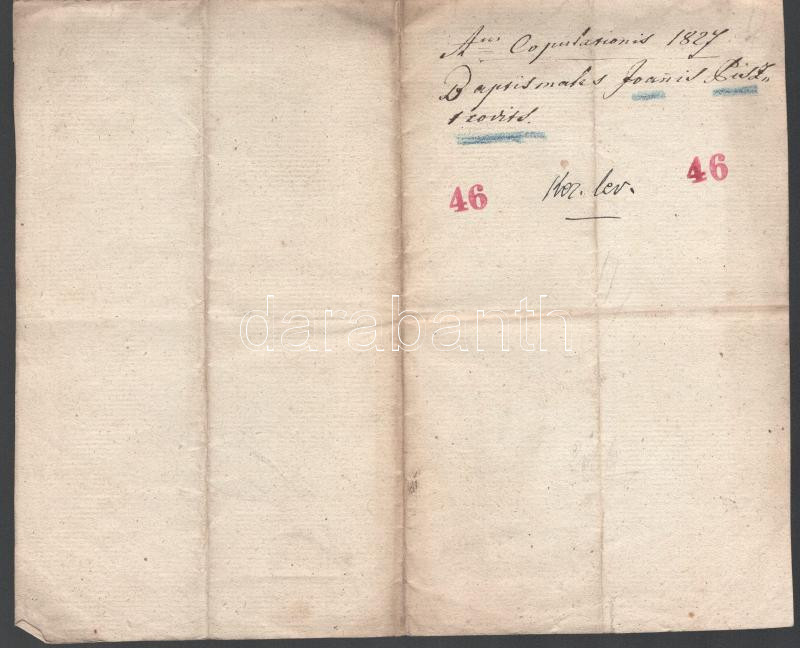 Aus Copulationis 1827
Baptismales Joañis Pisz„
trovits.
46 Ker. lev. 46
darabanth